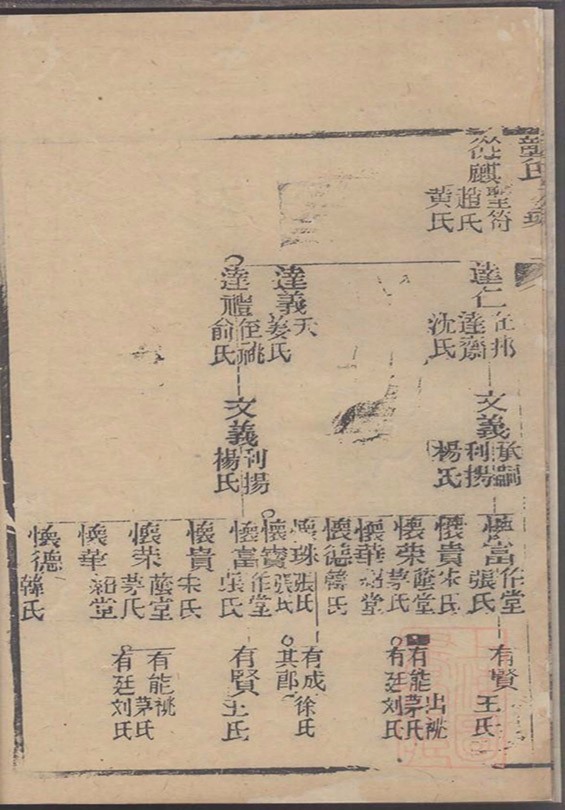 龔氏
從麒聖符
趙氏
黃氏
達仁在邦
達齋
沈氏
達義夭
姜氏
達禮在祧
俞氏
文義承嗣
利揚
楊氏
文義利揚
楊氏
懷富作堂
張氏
懷貴朱氏
懷荣蔭堂
茅氏
懷華堂
懷德韓氏
懷珠張氏
懷寶張氏
懷富作堂
張氏
懷貴朱氏
懷荣蔭堂
茅氏
懷華堂
懷德韓氏
有賢王氏
有能出祧
茅氏
有廷刘氏
有成徐氏
其郎
有賢王氏
有能祧
茅氏
有廷刘氏